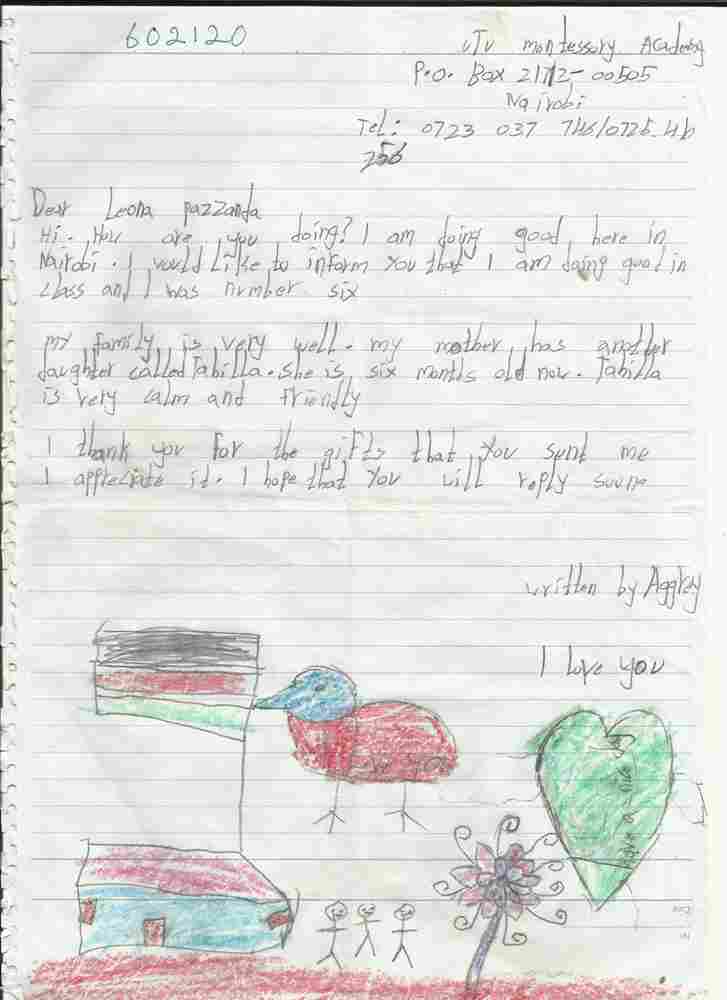 602120
UTU montessory Academy
P.O. Box 21112-00505
Nairobi
Tel: 0723 037 746/0725.46
756
Dear Leona pazzanda
Hi. How are you doing? I am doing good here in
Nairobi. I would like to inform you that I am doing good in
class and I was number six
my family is very well. my mother has another
daughter called Tabilla. she is six months old now. Tabilla
is very calm and friendly
I thank you for the gifts that you sent me
I appreciate it. I hope that you will reply soone
written by Aggrey
I love you